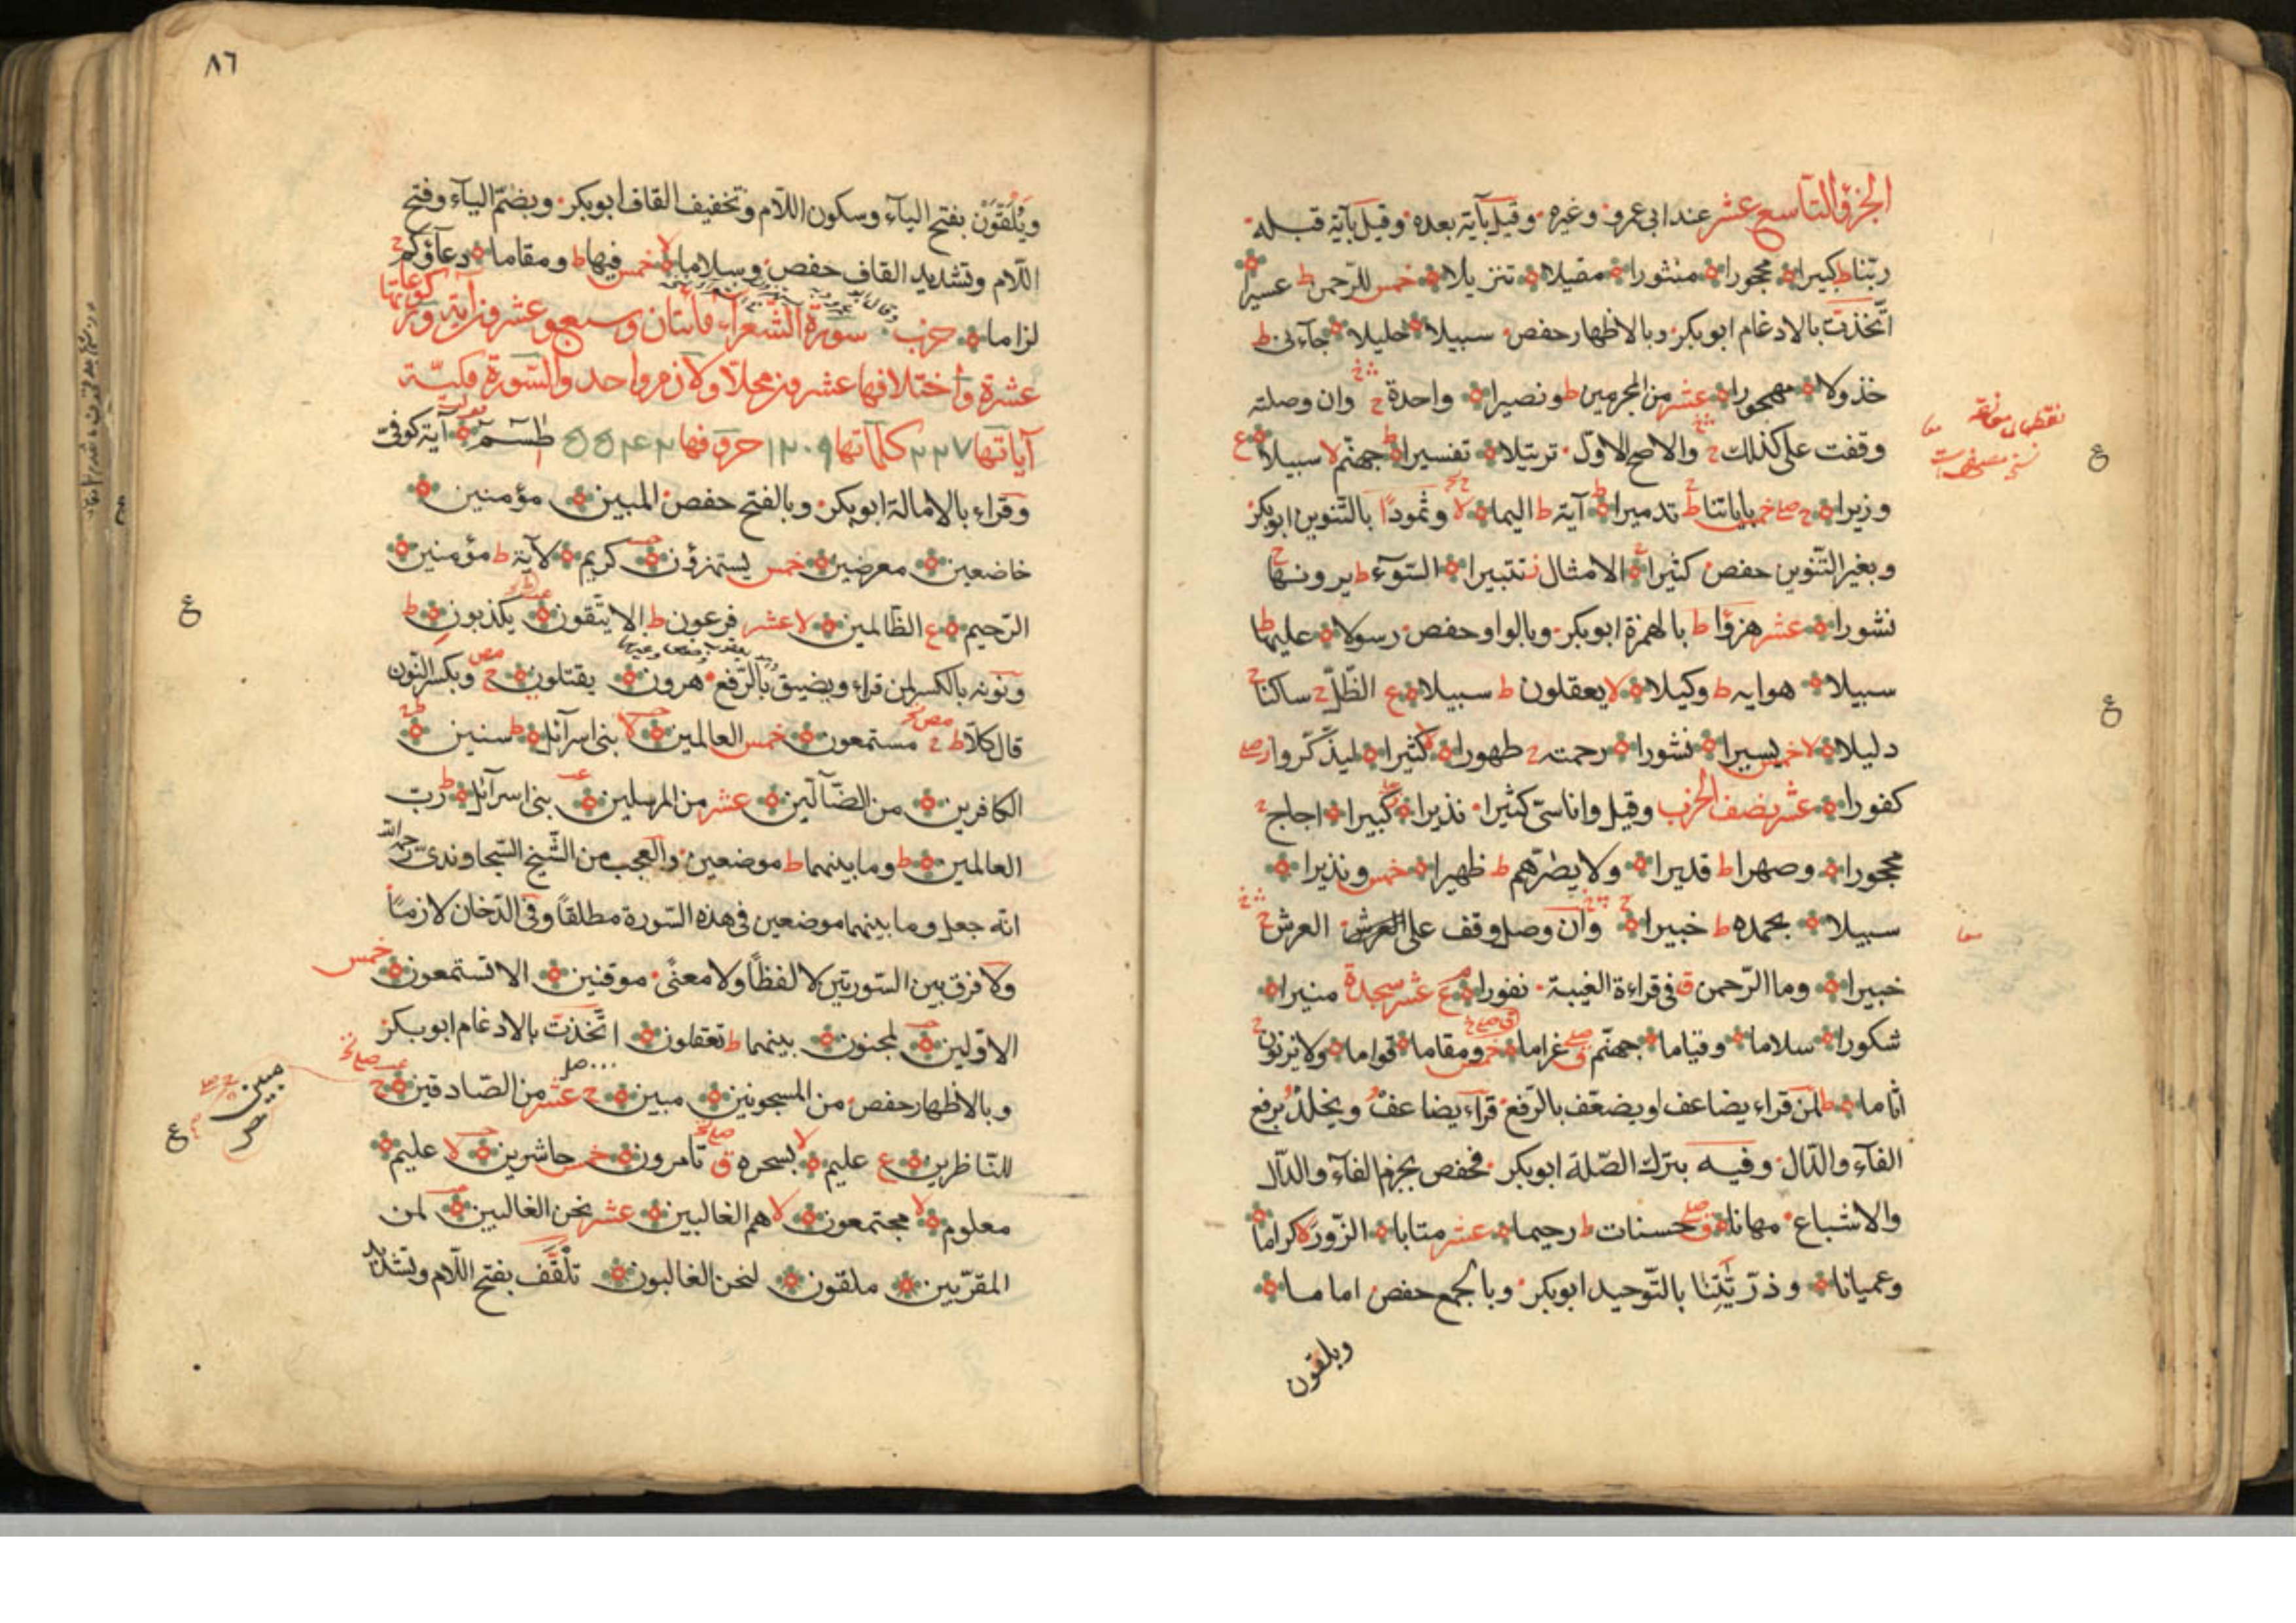 الجزؤ التاسع عشر عند ابى عمرو وغيره وقيل بآية بعده وقيل بآية قبله
ربنا ط كبيرا محجورا منثورا مقيلا تنزيلا خمس للرحمن ط عسيرا
اتّخذت بالادغام ابو بكر وبالاظهار حفص سبيلا خليلا جآءنى ط
خذولا مهجورا عشر من المجرمين ط ونصيرا واحدة ج وان وصلته
وقفت على كذلك ج والاصح الاوّل ترتيلا تفسيرا ط جهنّم لا سبيلا ع
وزيرا ج صلے خمس باياتنا ط تدميرا ط آية ط اليما لا وثمودًا بالتّنوين ابو بكر
وبغير التّنوين حفص كثيرا الامثال ز تتبيرا السّوء ط يرونها ج
نشورا عشر هزؤا ط بالهمزة ابو بكر وبالواو حفص رسولا عليها ط
سبيلا هوايه ط وكيلا لا يعقلون ط سبيلا ع الظّلّ ج ساكنا ج
دليلا لا خمس يسيرا نشورا رحمته ج طهورا لا كثيرا ليذّكّروا ز صلے
كفورا عشر نصف الحزب وقيل واناسىّ كثيرا نذيرا كبيرا اجاج ج
محجورا وصهرا ط قديرا ولا يضرّهم ط ظهيرا خمس ونذيرا
سبيلا بحمده ط خبيرا وان وصل وقف على العرش العرش ج
خبيرا وما الرّحمن ق فى قراءة الغيبة نفورا ع عشر سجدة منيرا
شكورا سلاما وقياما جهنّم ق صلے غراما خمس ومقاما قواما ولا يزنون ج
اثاما ط لمن قراء يضاعف او يضعّف بالرّفع قراء يضاعف ويخلد برفع
الفآء والدّال وفيه بترك الصّلة ابو بكر فحفص بجزم الفآء والدّال
والاشباع مهانا ق صلے حسنات ط رحيما عشر متابا الزّور لا كراما
وعميانا وذرّيّتنا بالتّوحيد ابو بكر وبالجمع حفص اماما
ويلقون
ع
ع
٨٦
ويلقون بفتح اليآء وسكون اللّام وتخفيف القاف ابو بكر وبضمّ اليآء وفتح
اللّام وتشديد القاف حفص وسلاما لا خمس فيها ط ومقاما دعآؤكم ج
لزاما حزب سورة الشعراء مأئتان وسبع وعشرون آية
عشرة واختلافها عشرون محلّا ولازم واحد والسّورة مكيّة
آياتها ٢٢٧ كلماتها ١٢٠٩ حروفها ٥٥٤٢ طسم آية كوفىّ
وقراء بالامالة ابو بكر وبالفتح حفص المبين مؤمنين
خاضعين معرضين خمس يستهزؤن كريم لآية ط مؤمنين
الرّحيم ع الظّالمين لا عشر فرعون ط الا يتّقون يكذبون ط
ونونه بالكسر لمن قراء ويضيق بالرّفع هرون يقتلون ج وبكسر النّون
قال كلّا ط ج مستمعون خمس العالمين لا بنى اسرآئل ط سنين
الكافرين من الضّآلّين عشر من المرسلين بنى اسرآئل ط ربّ
العالمين ط وما بينهما ط موضعين والعجب من الشّيخ السّجاوندىّ رحمه الله
انّه جعل وما بينهما موضعين فى هذه السّورة مطلقا وفى الدّخان لازمًا
ولا فرق بين السّورتين لا لفظًا ولا معنًى موقنين الا تستمعون خمس
الاوّلين لمجنون بينهما ط تعقلون اتّخذت بالادغام ابو بكر
وبالاظهار حفص من المسجونين مبين ج عشر من الصّادقين ج
للنّاظرين ع عليم لا بسحره ق صلے تامرون خمس حاشرين لا عليم
معلوم لا مجتمعون لا هم الغالبين عشر نحن الغالبين لمن
المقرّبين ملقون لنحن الغالبون تلقّف بفتح اللّام وتشديد
ع
مبين
ع